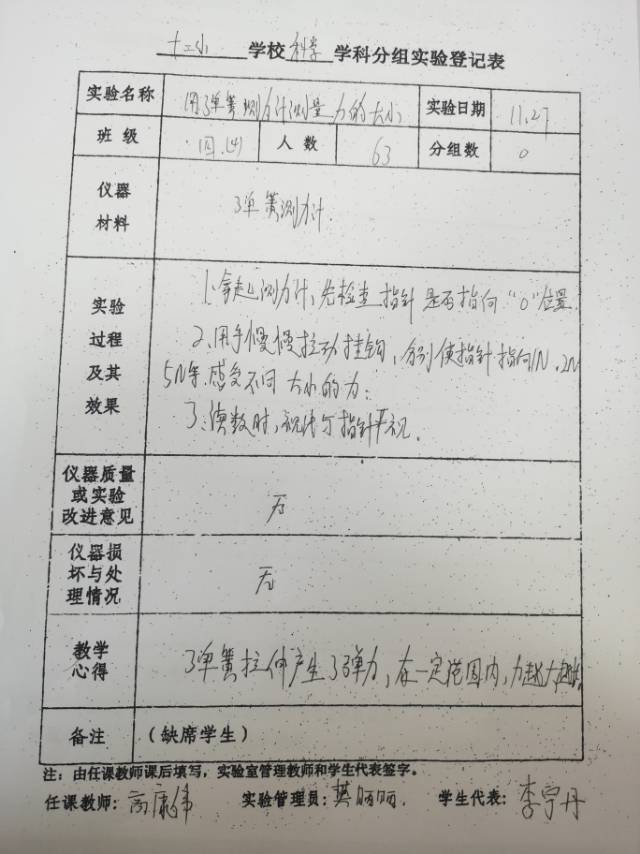 十二小 学校 科学 学科分组实验登记表
实验名称 用弹簧测力计测量力的大小 实验日期 11.27
班级 四(4) 人数 63 分组数 0
仪器材料 弹簧测力计.
实验过程及其效果
1.拿起测力计,先检查指针是否指向“0”位置.
2.用手慢慢拉动挂钩,分别使指针指向1N、2N
5N等.感受不同大小的力;
3.读数时,视线与指针平视.
仪器质量或实验改进意见 无
仪器损坏与处理情况 无
教学心得 弹簧拉伸产生了弹力,在一定范围内,力越大
备注 (缺席学生)
注:由任课教师课后填写,实验室管理教师和学生代表签字。
任课教师: 高康伟 实验管理员: 丽丽. 学生代表: 李宁丹